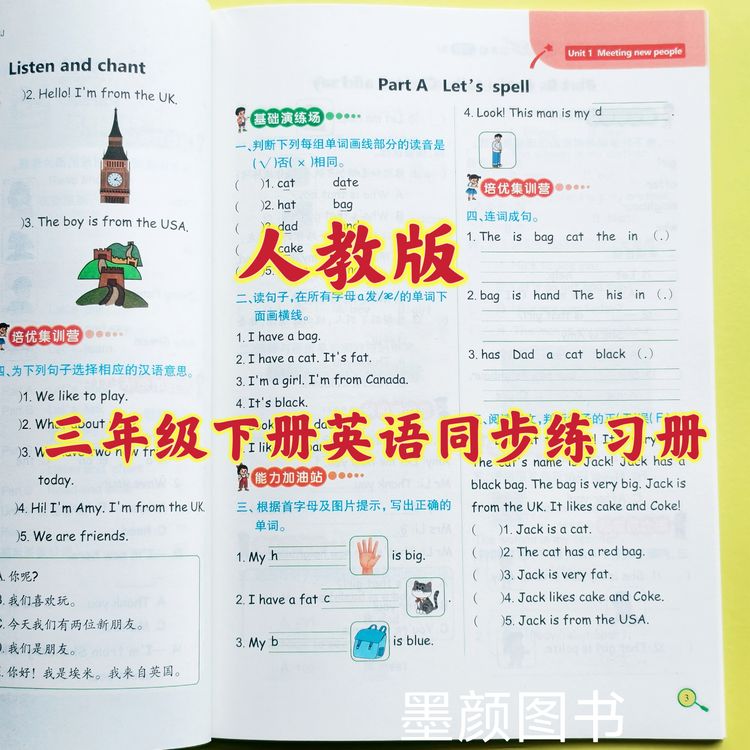 J
Listen and chant
)2. Hello! I'm from the UK.
)3. The boy is from the USA.
培优集训营
四、为下列句子选择相应的汉语意思。
)1. We like to play.
)2. What about
)3. We have two new frien
today.
)4. Hi! I'm Amy. I'm from the UK.
)5. We are friends.
A. 你呢?
B. 我们喜欢玩。
C. 今天我们有两位新朋友。
D. 我们是朋友。
E. 你好! 我是埃米。我来自英国。
Unit 1 Meeting new people
Part A Let's spell
基础演练场
一、判断下列每组单词画线部分的读音是
(√)否(×)相同。
( )1. cat date
( )2. hat bag
( )3. dad
( )4. cake
( )5.
二、读句子,在所有字母a发/æ/的单词下
面画横线。
1. I have a bag.
2. I have a cat. It's fat.
3. I'm a girl. I'm from Canada.
4. It's black.
6. I like
能力加油站
三、根据首字母及图片提示，写出正确的
单词。
1. My h is big.
2. I have a fat c .
3. My b is blue.
4. Look! This man is my d
培优集训营
四、连词成句。
1. The is bag cat the in (.)
2. bag is hand The his in (.)
3. has Dad a cat black (.)
The cat's name is Jack! Jack has a
black bag. The bag is very big. Jack is
from the UK. It likes cake and Coke!
( )1. Jack is a cat.
( )2. The cat has a red bag.
( )3. Jack is very fat.
( )4. Jack likes cake and Coke.
( )5. Jack is from the USA.
3
人教版
三年级下册英语同步练习册
墨颜图书